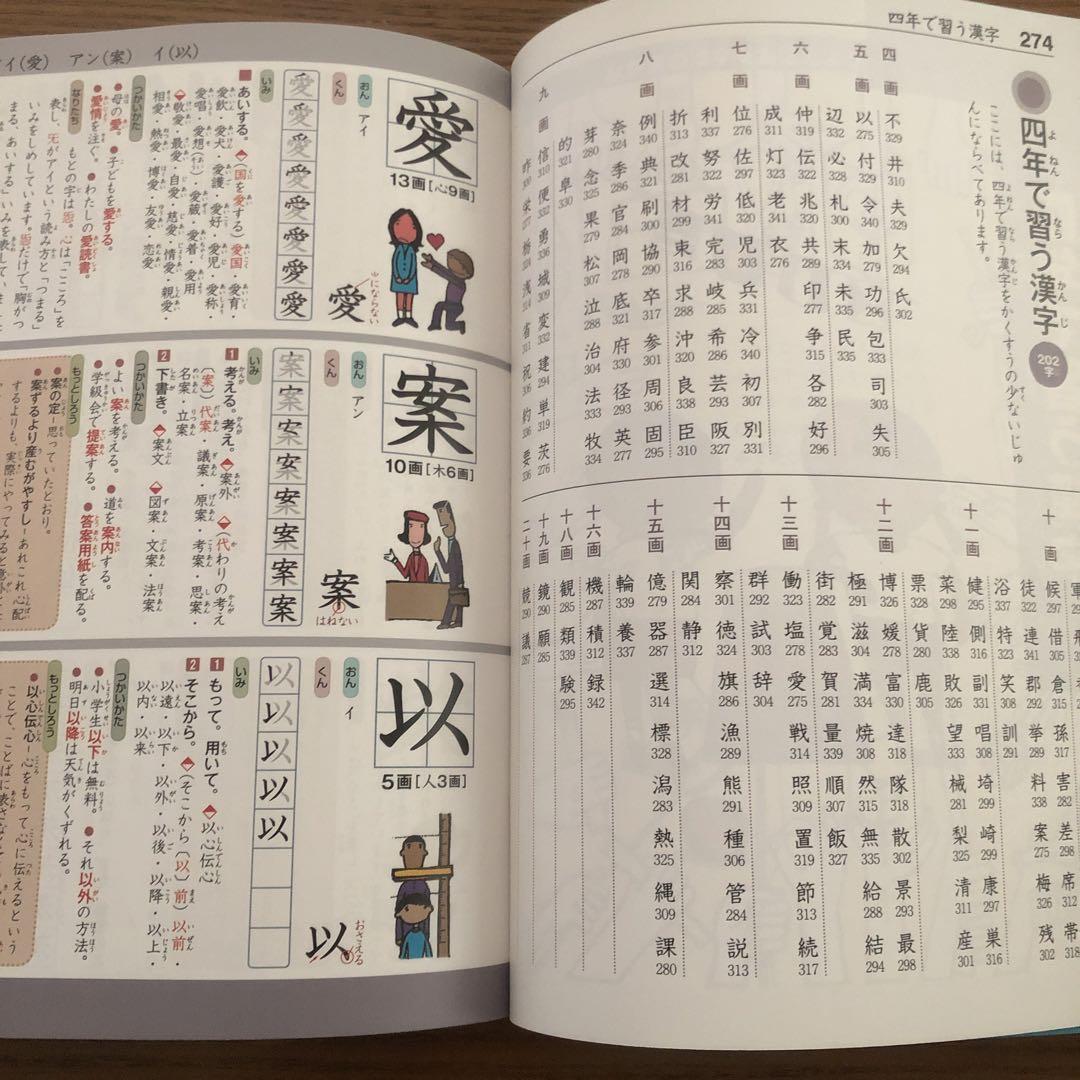 四年で習う漢字 274
四年で習う漢字 202字
ここには、四年で習う漢字をかくすうの少ないじゅんにならべてあります。
四画
不329 井310 夫329 欠294 氏302
五画
以275 付329 令340 加280 功296 包333 司303 失305
辺332 必328 札300 末334 未335 民335
六画
仲319 伝322 兆320 共289 印277 争315 各282 好296
成311 灯323 老341 衣276
七画
位276 佐297 低320 児303 兵331 冷340 初307 別331
利337 努322 労341 完283 岐285 希286 芸293 阪327
折313 改281 材299 束316 求288 沖320 良338 臣310
八画
例340 典321 刷299 協290 卒317 参301 周306 固295
奈324 季286 官284 岡279 底321 府330 径293 英277
芽280 念325 果279 松307 泣288 治304 法333 牧334
的321 阜330
九画
信 便332 勇336 城309 変332 建294 単319 茨276
昨300 栄277 栃324 浅 省311 祝306 約336 要336
十画
候297 借305 倉316 孫317 害282 差298 席312 帯318
徒322 連341 郡292 挙289 料338 案275 梅326 残302
浴337 特323 笑308 訓291
十一画
健295 側316 副331 唱308 埼299 崎299 康297 巣316
菜298 陸338 敗326 望333 械281 梨325 清311 産301
票328 貨280 鹿305
十二画
博326 媛278 富330 達318 隊318 散302 景293 最298
極291 滋304 満334 焼308 然315 無335 給288 結294
街282 覚283 賀281 量339 順307 飯327
十三画
働323 塩278 愛275 戦314 照309 置319 節313 続317
群292 試303 辞304
十四画
察301 徳324 旗286 漁289 熊291 種306 管284 説313
関284 静312
十五画
億279 器287 選314 標328 潟283 熱325 縄309 課280
輪339 養337
十六画
機287 積312 録342
十八画
観285 類339 験295
十九画
鏡290 願285
二十画
競290 議287
アイ(愛) アン(案) イ(以)
愛
13画[心9画]
おん アイ
くん
愛 にならない
いみ
あいする。(国を愛する)愛国・愛育・愛飲・愛犬・愛護・愛好・愛児・愛称・愛唱・愛想・愛蔵・愛着・愛用
敬愛・最愛・自愛・慈愛・情愛・親愛・相愛・熱愛・博愛・友愛・恋愛
つかいかた
●母の愛。●子どもを愛する。
●愛情を注ぐ。●わたしの愛読書。
なりたち
案
10画[木6画]
おん アン
くん
案 はねない
いみ
1 考える。考え。案外 (代わりの考え〔案〕)代案・議案・原案・考案・思案・名案・立案
2 下書き。案文 図案・文案・法案
つかいかた
●よい案を考える。●道を案内する。
●学級会で提案する。●答案用紙を配る。
もっとしろう
●案の定―思っていたとおり。
●案ずるより産むがやすし―あれこれ心配
以
5画[人3画]
おん イ
くん
以 おさえる
いみ
1 もって。用いて。以心伝心
2 そこから。(そこから〔以〕前)以前・以遠・以下・以外・以後・以降・以上・以内・以来
つかいかた
●小学生以下は無料。●それ以外の方法。
●明日以降は天気がくずれる。
もっとしろう
●以心伝心―心をもって心に伝えるという